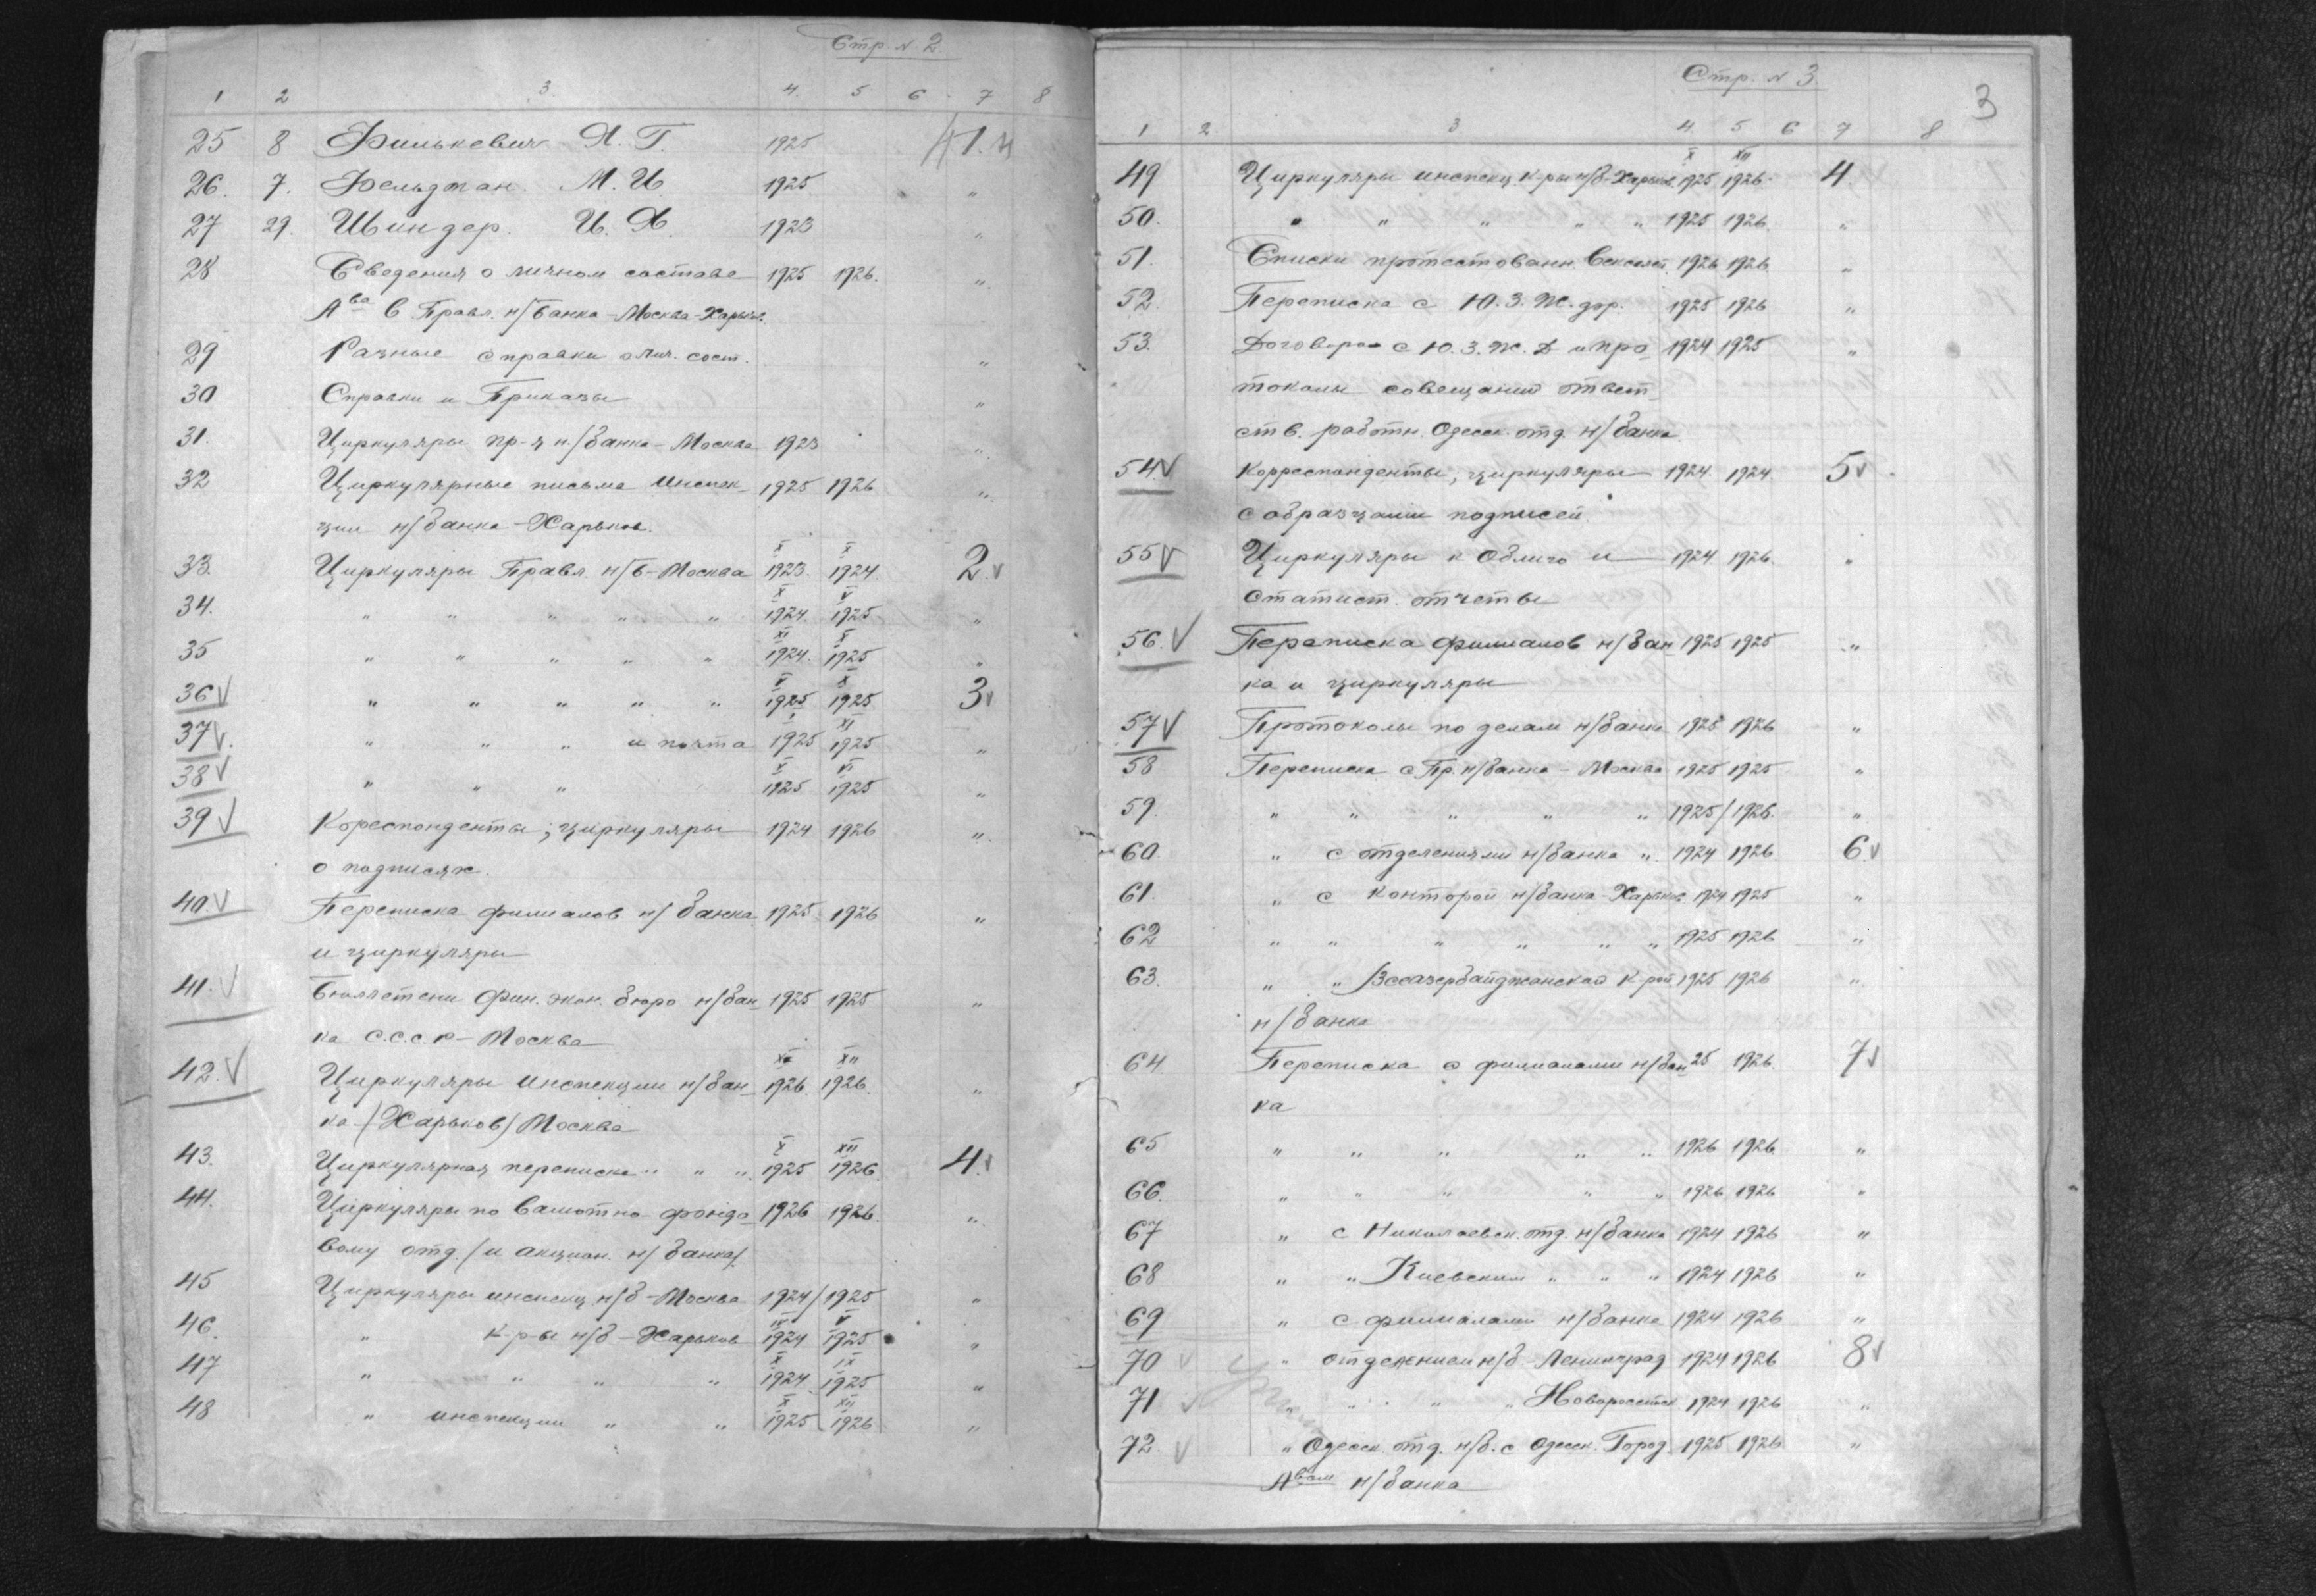 Стр. № 2
1 2 3. 4. 5 6 7 8
25 8 Филькевич Я. Г. 1925 1.
26. 7. Фельдман. М. И 1925 "
27 29. Шиндер. И. Я. 1923 "
28 Сведения о личном составе 1925 1926. "
Ава в Правл. н/Банка - Москва - Харьков.
29 Разные справки о лич. сост. "
30 Справки и Приказы "
31. Циркуляры пр-я н/банка - Москва 1923 "
32 Циркулярные письма Инспек- 1925 1926 "
ции н/банка - Харьков.
33. Циркуляры Правл. н/б - Москва X 1923. X 1924. 2. v
34. " " " " " X 1924. V 1925 "
35 " " " " " XI 1924. X 1925 "
36 v " " " " " V 1925 X 1925 3 v
37 v. " " " и почта 1925 XI 1925 "
38 v " " " X 1925 VI 1925 "
39 v Кореспонденты; циркуляры 1924 1926 "
о подписях.
40. v Переписка филиалов н/банка 1925 1926 "
и циркуляры
41. v Бюллетени Фин. экон. бюро н/бан- 1925 1925 "
ка С.С.С.Р - Москва
42. v Циркуляры Инспекции н/бан- 1926. XII 1926. "
ка (Харьков) Москва
43. Циркулярная переписка " " " X 1925 XII 1926 4. v
44. Циркуляры по Валютно-фондо- 1926 1926. "
вому отд. (и акцион. н/банка).
45 Циркуляры инспекц н/б - Москва 1924/1925 "
46. " к-р-ы н/б - Харьков 1924 V 1925 "
47 " " " " X 1924 IX 1925 "
48 " инспекции " " X 1925 XII 1926 "
Стр. № 3
3
1 2. 3 4. 5 6 7 8
49 Циркуляры инспекц. к-ры н/б - Харьков. X 1925 XII 1926. 4.
50. " " " " " 1925 1926. "
51. Списки протестованн. Векселей. 1926 1926 "
52. Переписка с Ю. З. Ж. дор. 1925 1926 "
53. Договора с Ю. З. Ж. Д и про- 1924 1925 "
токолы совещаний ответ-
ств. работн. Одесск. отд. н/банка
54 v Корреспонденты; циркуляры 1924. 1924 5 v
с образцами подписей.
55 v Циркуляры к Облиго и 1924 1926. "
статист. отчеты
56. v Переписка филиалов н/бан- 1925 1925 "
ка и циркуляры
57 v Протоколы по делам н/банка 1925 1926 "
58 Переписка с Пр. н/банка - Москва 1925 1925 "
59. " " " " " 1925/1926. "
60 " с отделениями н/банка " 1924 1926 6. v
61. " с конторой н/банка - Харьков 1924 1925 "
62 " " " " " " 1925 1926 "
63. " " Всеазербайджанской к-рой 1925 1926 "
н/банка
64 Переписка с филиалами н/бан- 25 1926. 7 v
ка
65 " " " " " 1926 1926 "
66. " " " " " 1926 1926 "
67 " с Николаевск. отд. н/банка 1924 1926 "
68 " " Киевским " " " 1924 1926 "
69 " с филиалами н/банка 1924 1926 "
70 v " отделением н/б - Ленинград 1924 1926 8 v
71 v " " " " Новороссийск 1924 1926 "
72. v " Одесск. отд. н/б. с Одесск. Город. 1925 1926 "
Авам н/банка